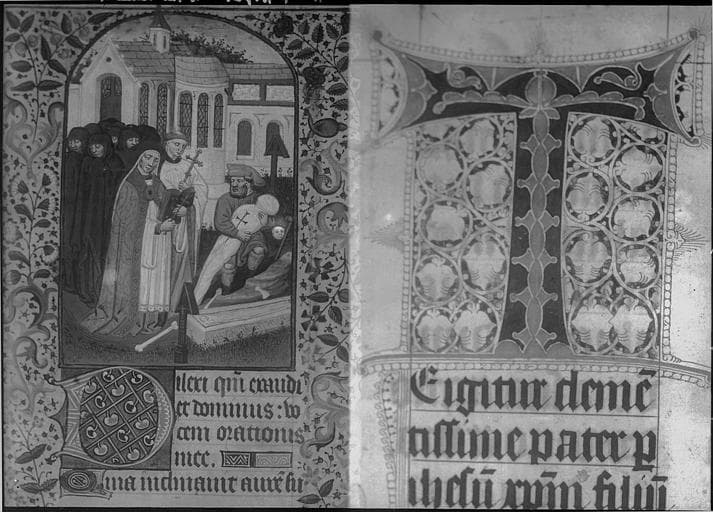 Dilexi qm̄ exaudi
et dominus : vo
cem orationis
mee.
Quia inclinavit aurē su
Te igitur clemē
tissime pater p
ihesū xp̄m filiū